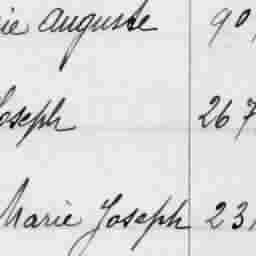 ie Auguste 90
Joseph 267
Marie Joseph 231